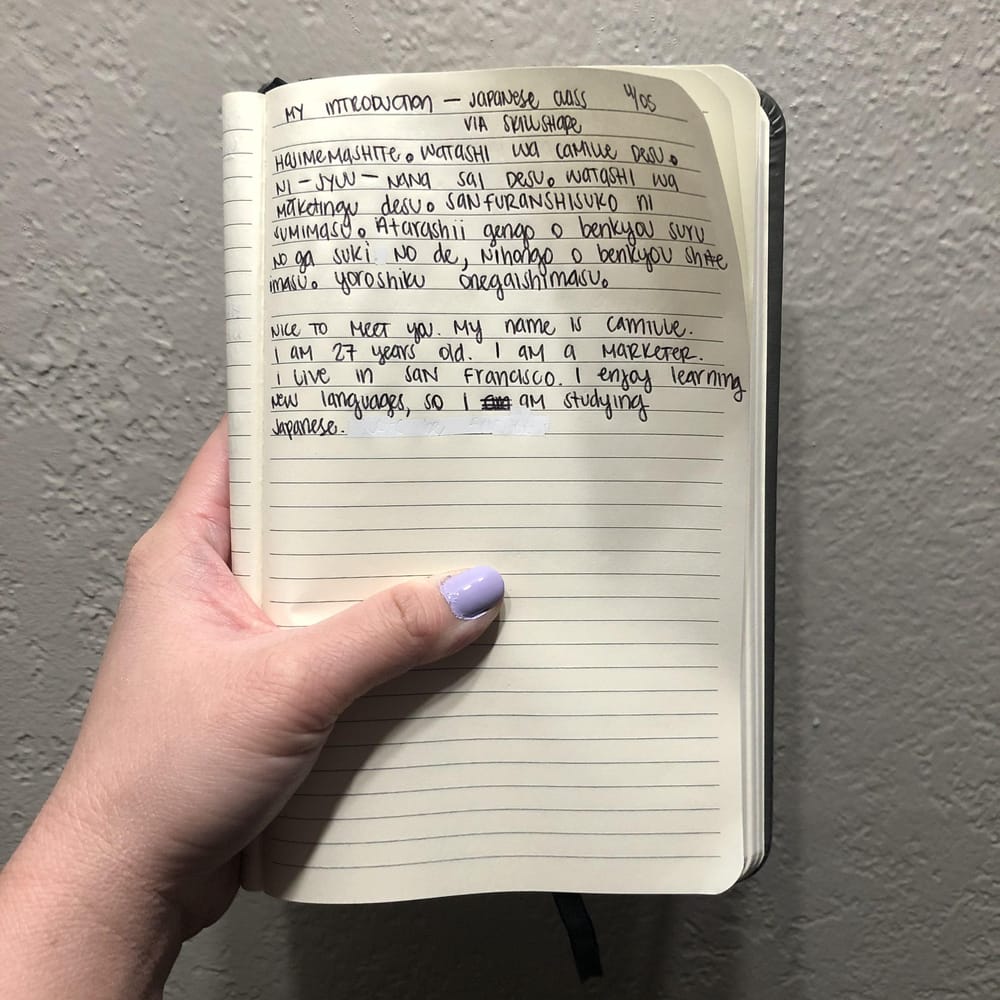 MY INTRODUCTION — JAPANESE CLASS 4/05
VIA SKILLSHARE
HAJIMEMASHITE。WATASHI WA CAMILLE DESU。
NI-JYUU-NANA SAI DESU。WATASHI WA
MāKetingu desu。SANFURANSHISUKO ni
SUMIMASU。Atarashii gengo o benkyou suru
no ga suki no de, Nihongo o benkyou shite
imasu。yoroshiku onegaishimasu。
NICE TO MEET you. My name is CAMILLE.
I AM 27 years old. I AM a MARKETER.
I Live in SAN Francisco. I enjoy learning
New languages, so I am studying
Japanese.